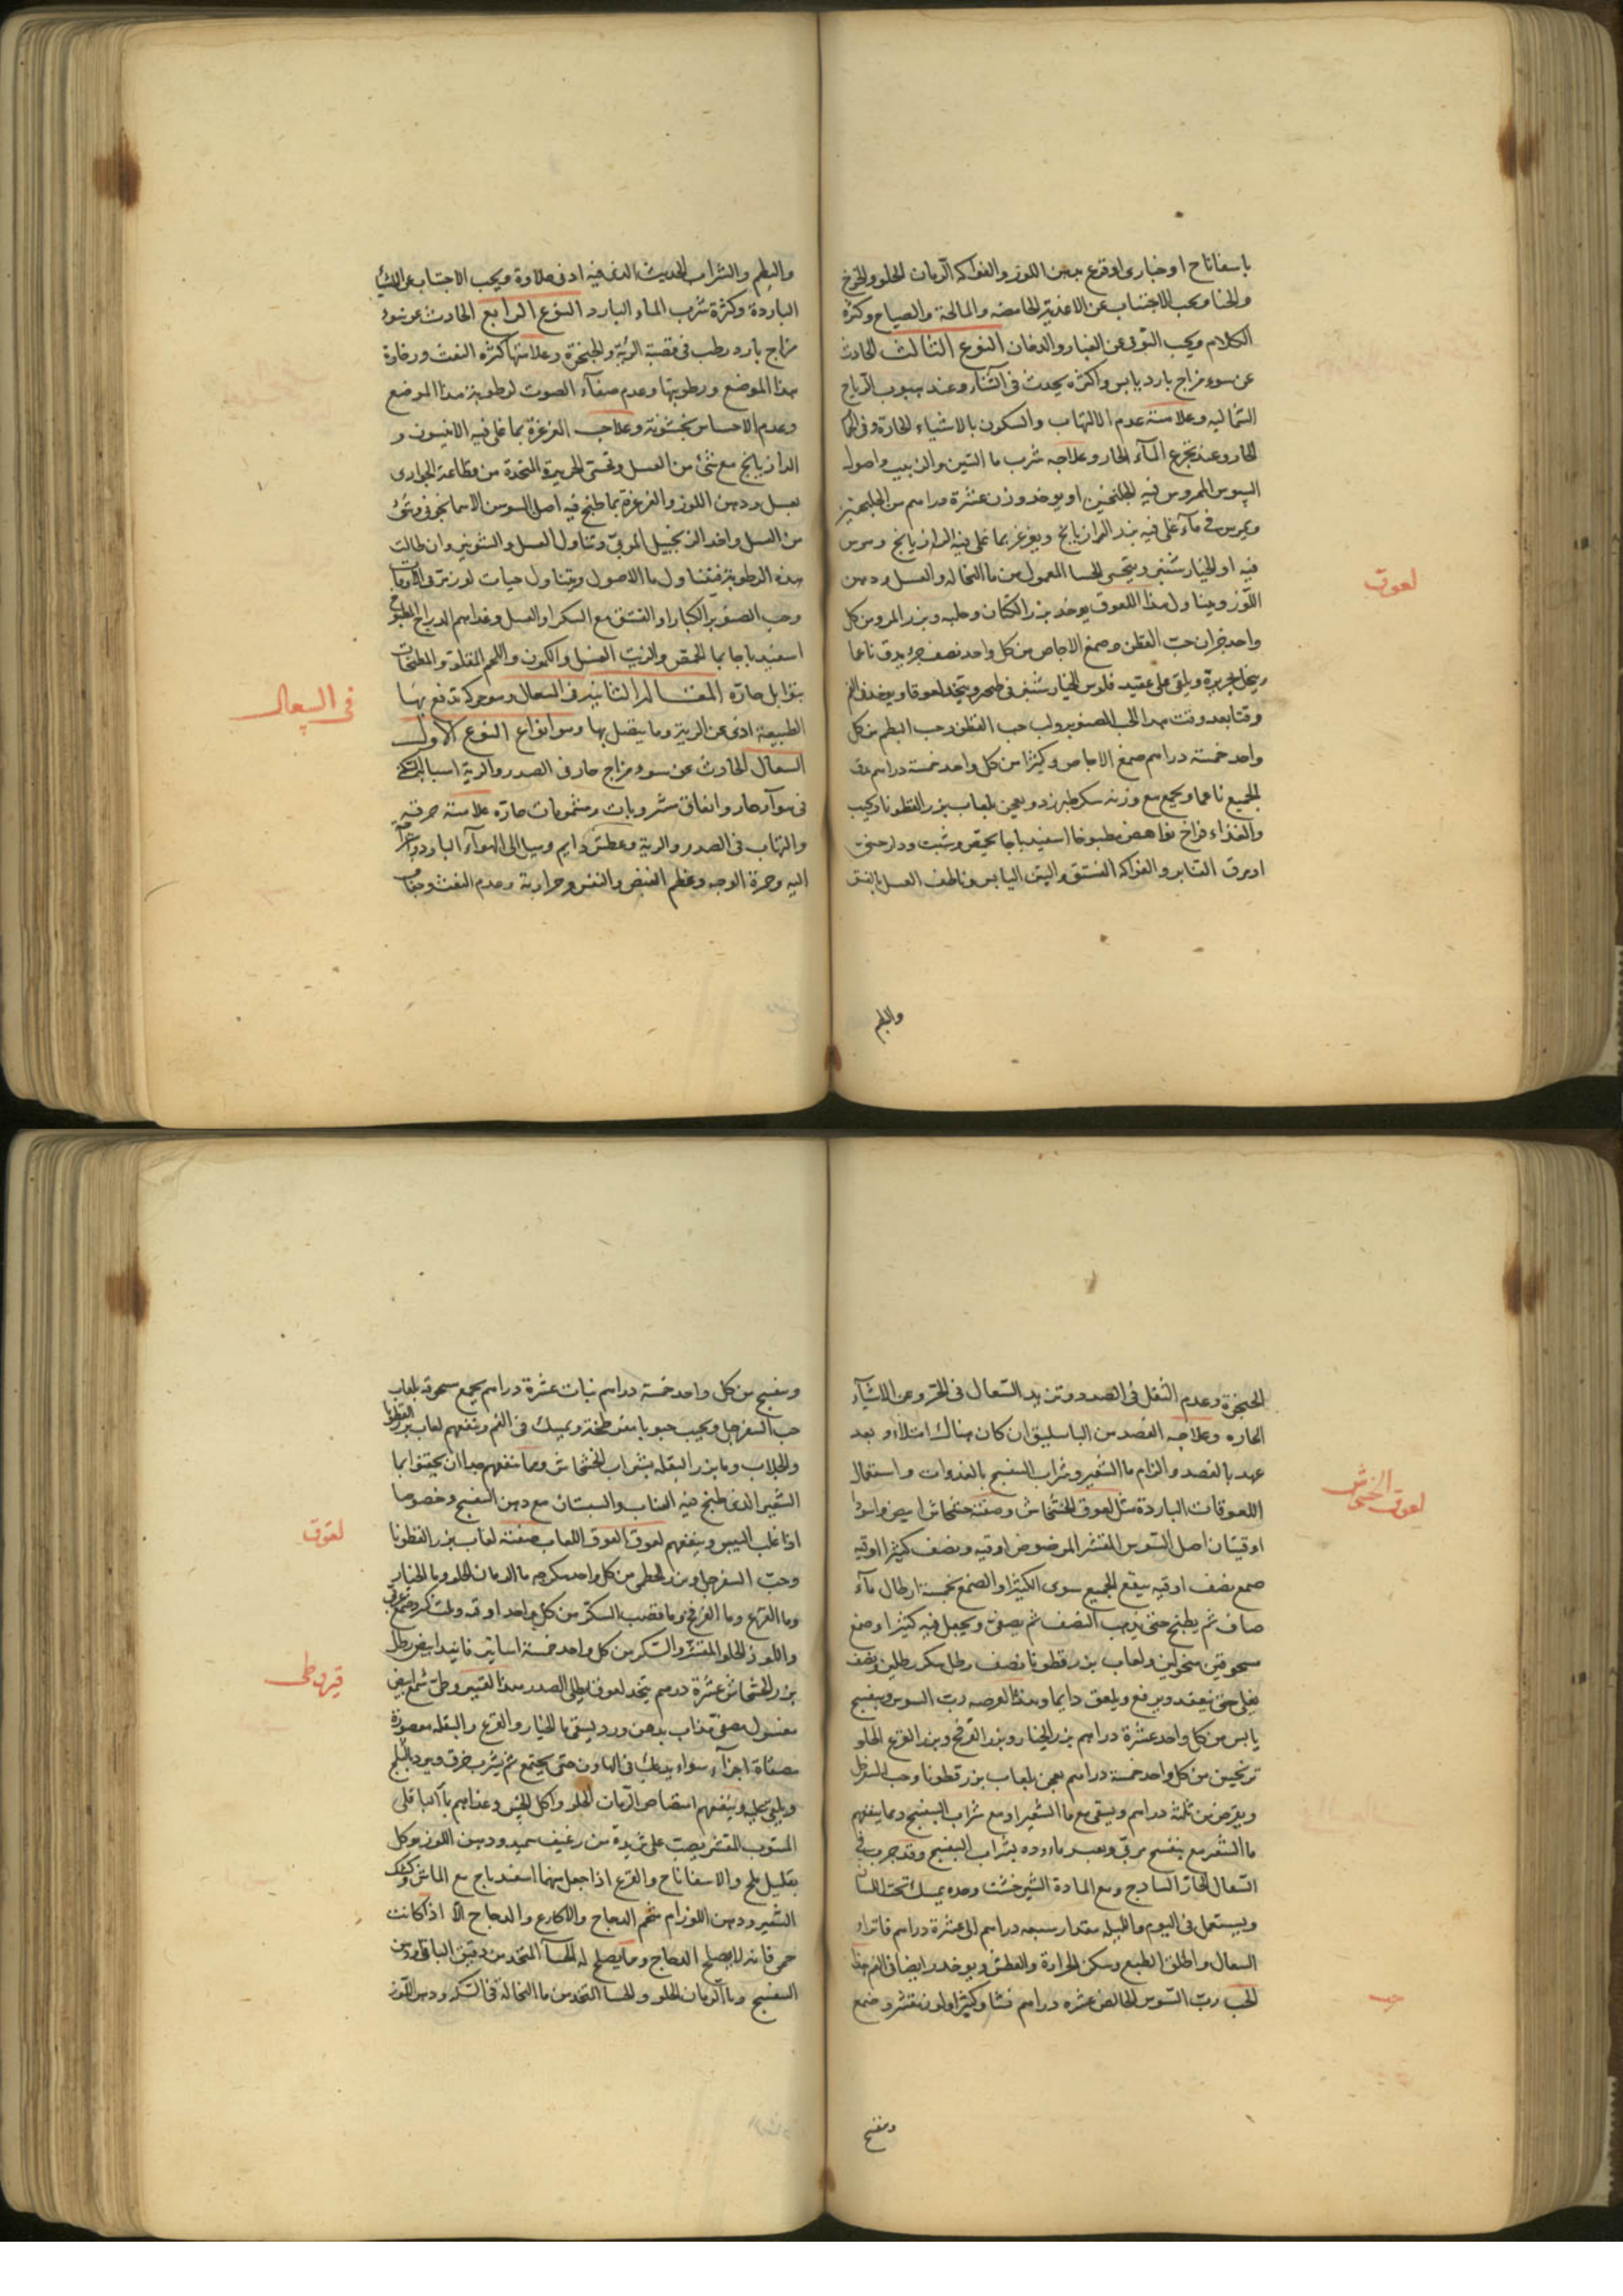 باسفاناخ او خبازى او قرع بدهن اللوز والفواكه الرمان الحلو والخوخ
ويجب الاجتناب عن الاغذية الحامضه والمالحة والصياح وكثرة
الكلام ويجب التوقى عن الغبار والدخان النوع الثالث الحادث
عن سوء مزاج بارد يابس واكثره يحدث فى الشتاء وعند هبوب الرياح
الشماليه وعلامته عدم الالتهاب والسكون بالاشياء الحارة وفى
الحار وعند تجرع الماء الحار وعلاجه شرب ما التين والزبيب واصول
السوس الممروس فيه الجلنجبين او يوخذ وزن عشرة دراهم من الجلنجبين
ويمرس فى ماء غلى فيه بزر الرازيانج ويغرغر بما غلى فيه الرازيانج ومرس
فيه او الخيار شنبر ويتحسى الحسا المعمول من ما النخاله والعسل ودهن
اللوز ويتناول هذا اللعوق يوخذ بزر الكتان وحلبه وبزر المرو من كل
لعوق
واحد جزان حب القطن وصمغ الاجاص من كل واحد نصف جزء يدق ناعما
وينخل بحريرة ويلقى على عقيد فلوس الخيار شنبر ويتخذ لعوقا ويوخذ فى الفم
وقتا بعد وقت هذا الحب الصنوبر ولب حب القطن وحب البطم من كل
واحد خمسة دراهم صمغ الاجاص وكثيرا من كل واحد خمسة دراهم يدق
الجميع ناعما ويجمع مع وزنه سكر طبرزد ويعجن بلعاب بزر القطونا ويحبب
والغذاء فراخ نواهض مطبوخا اسفيدباجا بحمص وشبت ودارصينى
او مرق القنابر والفواكه الفستق والتين اليابس وناطف العسل بالفستق
والبطم
والبطم والشراب الحديث الذى فيه ادنى حلاوة ويجب الاجتناب عن الاشيا
الباردة وكثرة شرب الماء البارد النوع الرابع الحادث عن سوء
مزاج بارد رطب فى قصبة الرية والحنجرة وعلامتها كثرة النفث ورخاوة
هذا الموضع ورطوبتها وعدم صفاء الصوت لرطوبة هذا الموضع
وعدم الاحساس بخشونة وعلاجه الغرغرة بما غلى فيه الانيسون و
الرازيانج مع شئ من العسل وتحسى الحريرة المتخذة من
بعسل ودهن اللوز والغرغرة بما طبخ فيه اصل السوسن الاسمانجونى وشئ
من العسل واخذ الزنجبيل المربى وتناول العسل والشونيز وان طالت
هذه الرطوبة فتناول ما الاصول ويتناول حبات
وحب الصنوبر الكبار او الفستق مع السكر او العسل وغذاهم الدراج المطبوخ
اسفيدباجا بما الحمص والزيت الغسيل والكمون واللحم المقلو والمطجنات
بتوابل حارة المقالة الثانية فى السعال وهو حركة تدفع بها
فى السعال
الطبيعة اذى عن الرية وما يتصل بها وهو انواع النوع الاول
السعال الحادث عن سوء مزاج حار فى الصدر والرية اسبابه
فى هوآء حار واتفاق مشروبات ومشمومات حارة علامته حرقة
والتهاب فى الصدر والرية وعطش دايم وميل الى الهوآء البارد
اليه وحمرة الوجه وعظم النبض والنفس وحرارته وعدم النفث وجفاف
الحنجرة وعدم الثقل فى الصدر وتزيد السعال فى الحر وعن الاشيآء
الحاره وعلاجه الفصد من الباسليق ان كان هناك امتلاء وبعد
عهد بالفصد والزام ما الشعير وشراب البنفسج بالغدوات واستعمال
لعوق الخشخاش
اللعوقات الباردة مثل لعوق الخشخاش وصفته خشخاش ابيض واسود
اوقيتان اصل السوس المقشر المرضوض اوقيه ونصف كثيرا اوقيه
صمغ نصف اوقيه ينقع الجميع سوى الكثيرا والصمغ بخمسة ارطال مآء
صاف ثم يطبخ حتى يذهب النصف ثم يصفى ويجعل فيه كثيرا وصمغ
مسحوقين منخولين ولعاب بزر قطونا نصف رطل سكر رطلين ونصف
يغلى حتى ينعقد ويرفع ويلعق دايما وهذا القرصه رب السوس وبنفسج
يابس من كل واحد عشرة دراهم بزر الخيار وبزر القرفخ وبزر القرع الحلو
ترنجبين من كل واحد خمسة دراهم يعجن بلعاب بزر قطونا وحب السفرجل
ويقرص من ثلثة دراهم ويسقى مع ما الشعير او مع شراب البنفسج ومما ينفعهم
ما الشعير مع بنفسج مربى وبعد بشراب البنفسج وقد جرب فى
السعال الحار الساذج ومع المادة الشيرخشت وحده يمسك تحت اللسان
ويستعمل فى اليوم والليله مقدار سبعه دراهم الى عشرة دراهم فاتراو
السعال واطلق الطبع وسكن الحرارة والعطش ويوخذ ايضا فى الفم هذا
حب
الحب رب السوس الخالص عشره دراهم نشا وكثيرا ولوز مقشر وصمغ
وبنفسج
وبنفسج من كل واحد خمسة دراهم نبات عشرة دراهم يجمع مسحوقه بلعاب
حب السفرجل ويحبب حبوبا مفرطحة ويمسك فى الفم وينفعهم لعاب بزر القطونا
والجلاب وما بزر البقله بشراب الخشخاش ومما ينفعهم جدا ان يحتقنوا بما
الشعير الذى طبخ فيه العناب والسبستان مع دهن البنفسج وخصوصا
لعوق
اذا غلب اليبس وينفعهم لعوق لعوق اللعاب صفته لعاب بزر القطونا
وحب السفرجل وبزر الخطمى من كل واحد سكرجه ما الرمان الحلو وما الخيار
وما القرع وما القرفخ وما قصب السكر من كل واحد اوقيه
واللوز الحلو المقشر والسكر من كل واحد خمسة اساتير فانيد ابيض رطل
قيروطى
بزر الخشخاش عشرة درهم يتخذ لعوق ويطلى الصدر بهذا القيروطى شمع ابيض
مغسول مصفى مذاب بدهن ورد ويسقى ما الخيار والقرع والبقله معصورة
مصفاة اجزآء سواء يدعك فى الهاون حتى يجتمع ثم يشرب خرق ويبرد بالثلج
ويلقى عليه وينفعهم امتصاص الرمان الحلو واكل الخس وغذاهم ما الباقلى
المنقوب المقشر يصب على ثريدة من رغيف سميد ودهن اللوز ويوكل
بقليل ملح والاسفاناخ والقرع اذا جعل منهما اسفيدباج مع الماش وكشك
الشعير ودهن اللوز ام شحم الدجاج والاكارع والدجاج الا اذا كانت
حمى فانه لا يصلح الدجاج وما يصلح له الحسآ المتخذ من دقيق الباقلى ودهن
البنفسج وما الرمان الحلو والحسا المتخذ من ما النخاله السكر ودهن اللوز